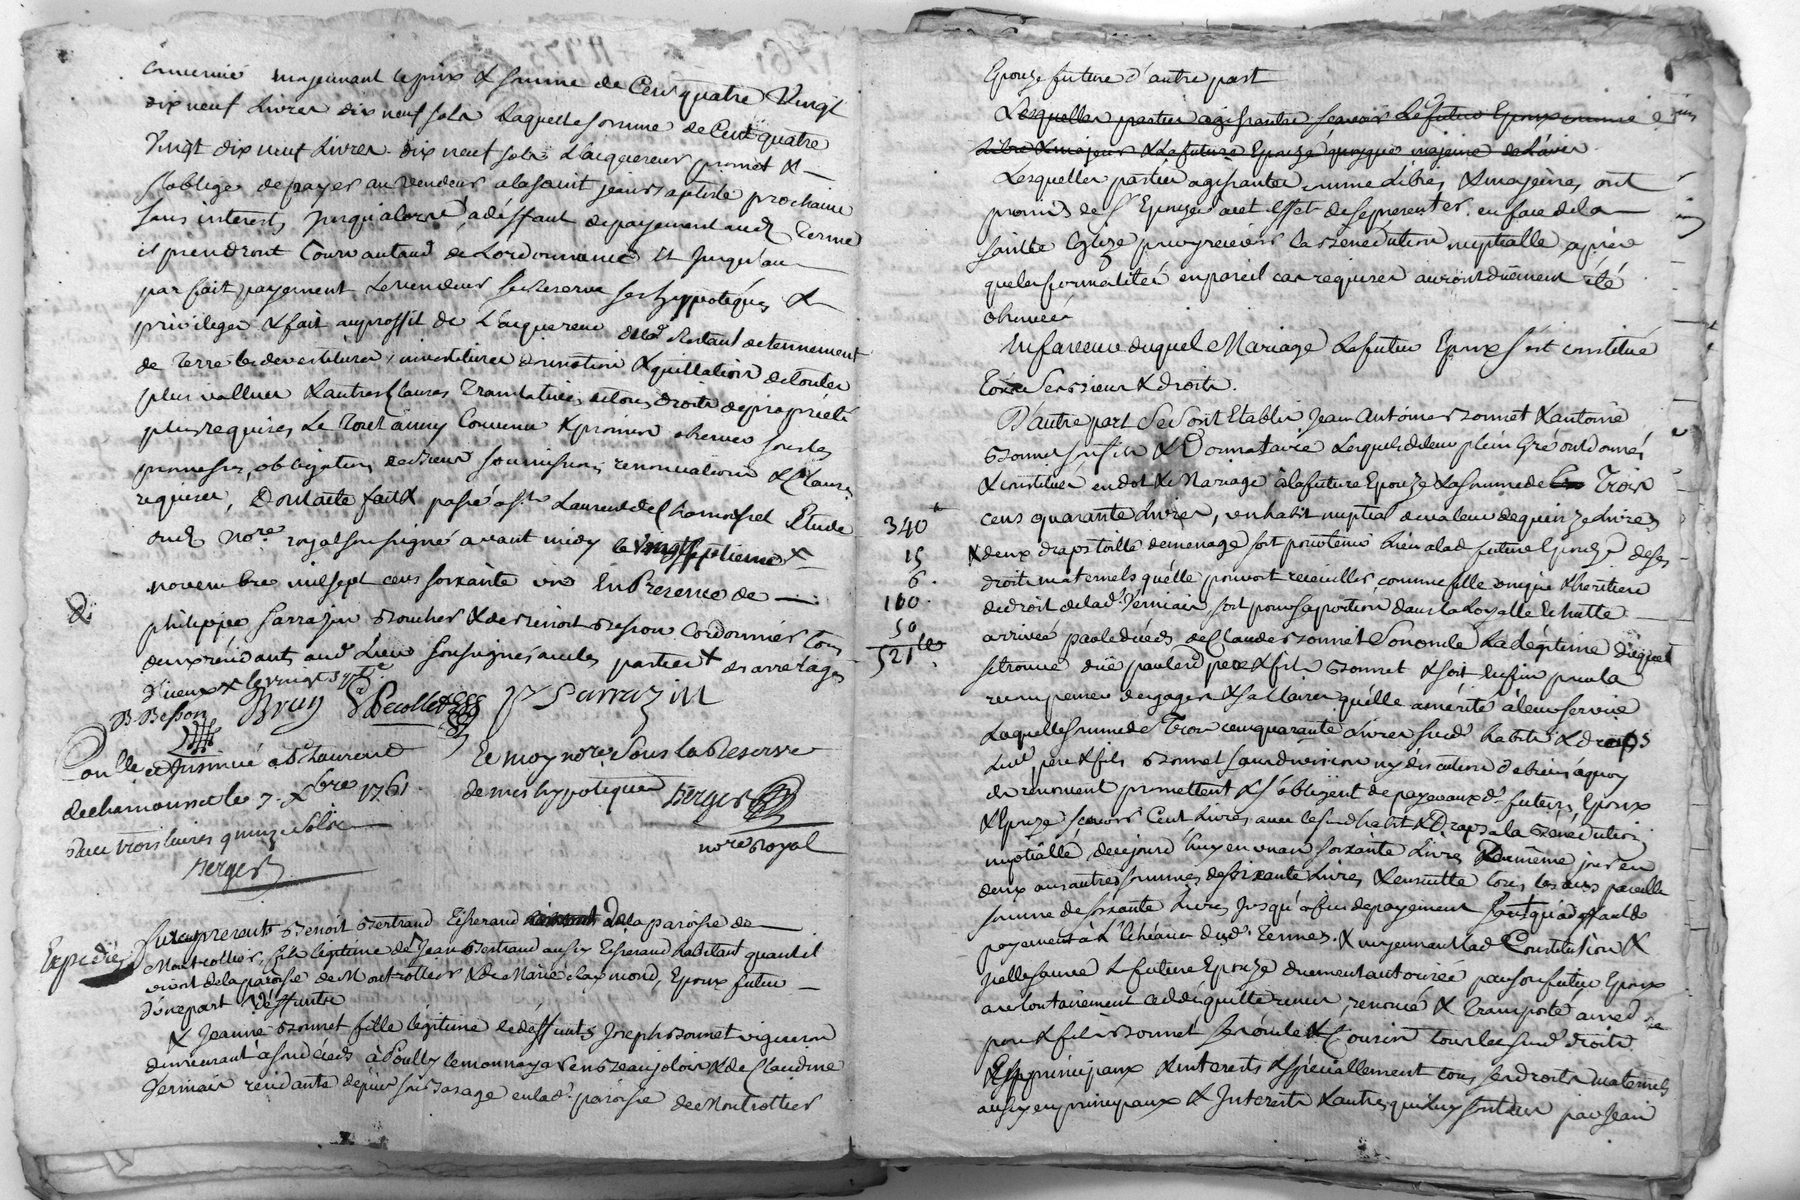 moyennant le prix & somme de Cent quatre Vingt
dix neuf Livres dix neuf sols laquelle somme de Cent quatre
Vingt dix neuf Livres dix neuf sols L'acquereur promet &
s'oblige de payer au vendeur a la saint jean baptiste prochaine
sans interests jusqu'alors, a deffaut de payement aud terme
il prendront Cours autaud de Lordonnance Et Jusqu'au
parfait payement Le vendeur se Reserve ses hyppoteques &
privileges & fait au proffit de L'acquereur
de terre les devestitures, investitures & quittation de toutes
plus vallues & autres Clauses translatives de tous droits de propriété
plus requises Le Tout ainsy Convenu & promis observer sous les
promesses, obligations de Biens soumissions, renonciations & Clauses
requises, Dont acte fait & passé a St Laurent de Chamousset Etude
nore royal soussigné avant midy le vingt septieme
novembre mil sept cens soixante un En Presence de
philippe Sarrazin Boucher & de Benoit Besson Cordonnier tous
deux résidants aud Lieu soussignés avec les parties
B Besson Brun Decollet P Sarrazin
Controllé et Insinué a St Laurent
de chamousset le 7 Xbre 1761
Reçu trois livres quinze sols
Berger
Et moy nore Sous la Reserve
de mes hypoteques Berger
nore Royal
Expedié
Furent presents Benoit Bertrand Tisserand de la paroisse de
Montrottier, fils legitime de Jean Bertrand aussy Tisserand habitant quand il
vivoit de la paroisse de Montrottier & de Marie Epoux futur
d'une part
& Jeanne Bonnet fille legitime de deffunts Joseph Bonnet vigneron
demeurant a son décéds à Pouilly le monnay en Beaujolois & de Claudine
Germain résidante depuis son bas age en lad. paroisse de Montrottier
Epouze future d'autre part
Lesquelles parties agissantes scavoir Le futur Epoux comme
Libre & majeur & La future Epouze quoyque majeure de L'avis
Lesquelles parties agissantes comme Libres & majeures ont
promis de s'Epouzer a cet effet de se presenter en face de la
sainte Eglize pour y recevoir la Benediction nuptialle après
que les formalités en pareil cas requises auront duement été
observées
En faveur duquel Mariage Le futur Epoux s'est constitué
Tous ses biens & droits.
D'autre part Se sont Etablis Jean Antoine Bonnet & antoine
Bonnet son fils & Donnataire Lesquels de leur plein Gré ont donnés
& constitués en dot de Mariage à la future Epouze La somme de Trois
cens quarante Livres, un habit nuptial de valeur de quinze Livres
340
15
6
160
521
& deux draps toille de menage soit pour tenir lieu a lad future Epouze de ses
droits maternels qu'elle pouvoit recueillir comme fille unique & heritiere
de droit de lad. Germain, soit pour sa portion dans la Loyalle Echutte
arrivée par le décéds de Claude Bonnet Son oncle La Légitime duquel
se trouve düe par lesd pere & fils Bonnet & soit Enfin pour la
recompence de gages & sallaires qu'elle a mérité à leur service
Laquelle somme de Trois cens quarante Livres susd habits & draps
Lesd pere & fils Bonnet sans division ny discution de biens à quoy
ils renoncent promettent & s'obligent de payer auxd. futurs Epoux
& Epouze scavoir Cent Livres avec le susd habit & Draps a la Bénédiction
nuptialle, de ce jourd'huy en un an soixante Livres & au même jour en
deux ans autre somme de soixante Livres & ensuitte tous les ans pareille
somme de soixante Livres jusqu'a fin de payement
payement à L'Echéance desd. Termes. & moyennant lad Constitution &
icelle sauve La future Epouze duement autorisée par son futur Epoux
a volontairement cédé quitté remis, renoncé & Transporté auxd
pere & fils Bonnet ses oncle & Cousin tous les susd droits
principaux & interests & spéciallement tous ses droits maternels
aussy en principaux & Interests & autres qui luy sont dus par Jean